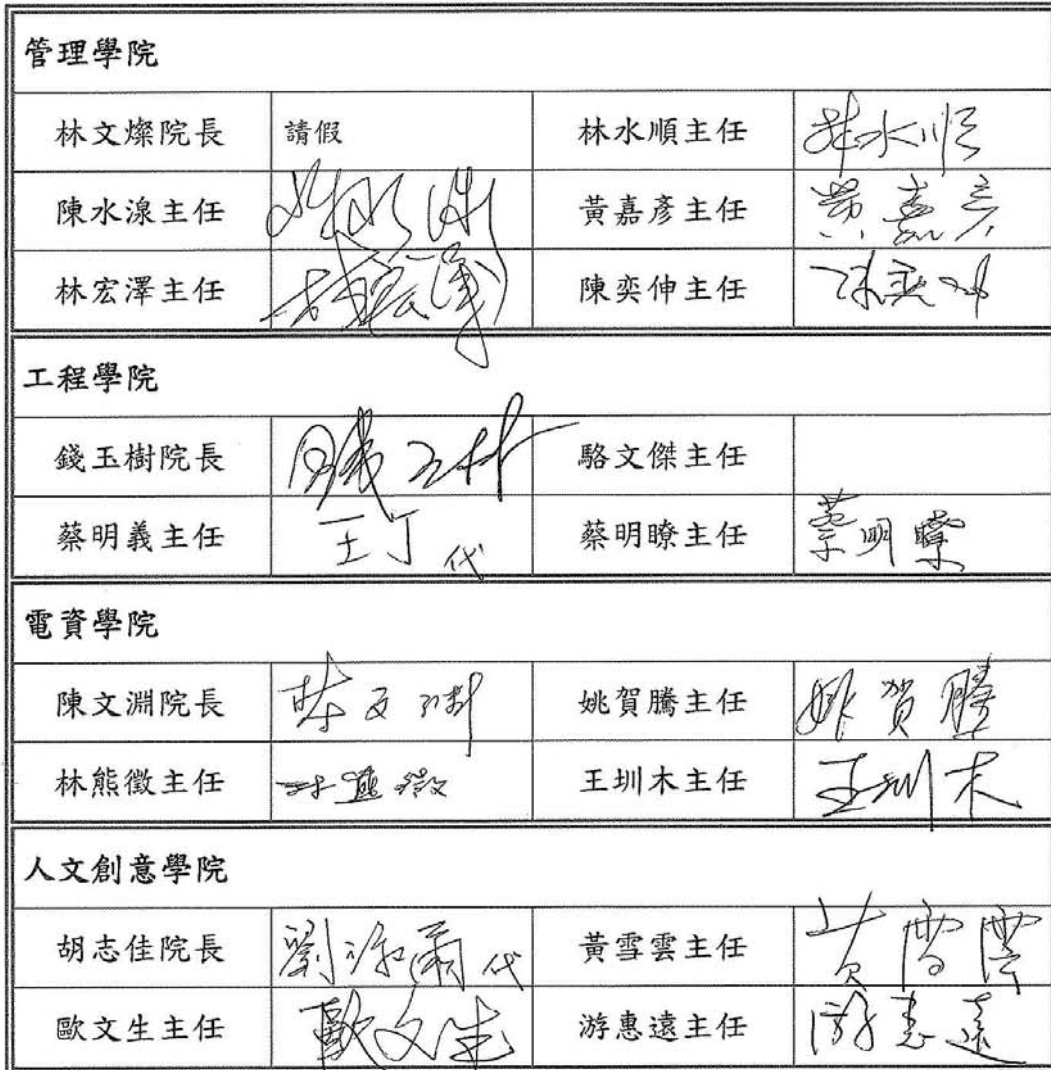 管理學院
林文燦院長 請假 林水順主任 林水順
陳水湶主任 黃嘉彥主任 黃嘉彥
林宏澤主任 林宏澤 陳奕伸主任 陳奕伸
工程學院
錢玉樹院長 錢玉樹 駱文傑主任
蔡明義主任 王丁 代 蔡明瞭主任 蔡明瞭
電資學院
陳文淵院長 陳文淵 姚賀騰主任 姚賀騰
林熊徵主任 林熊徵 王圳木主任 王圳木
人文創意學院
胡志佳院長 代 黃雪雲主任 黃雪雲
歐文生主任 歐文生 游惠遠主任 游惠遠